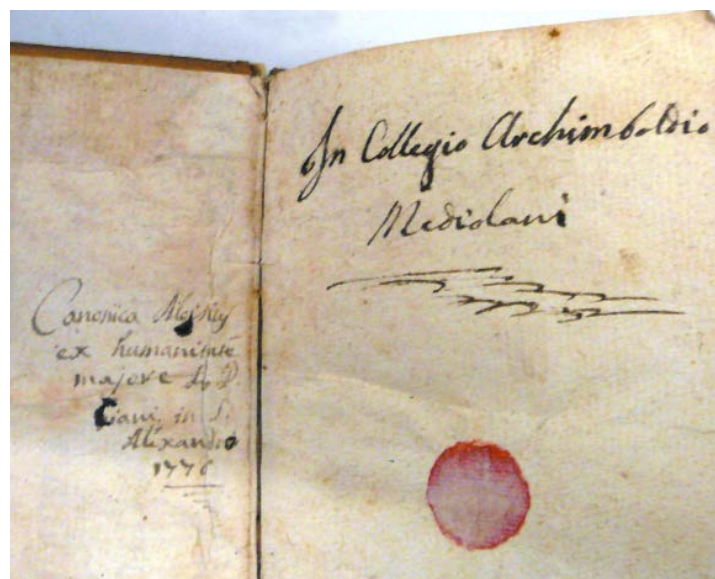 Canonica
ex humanitate
majore
Ciani in S.
Alexandro
1776
In Collegio Archimboldio
Mediolani